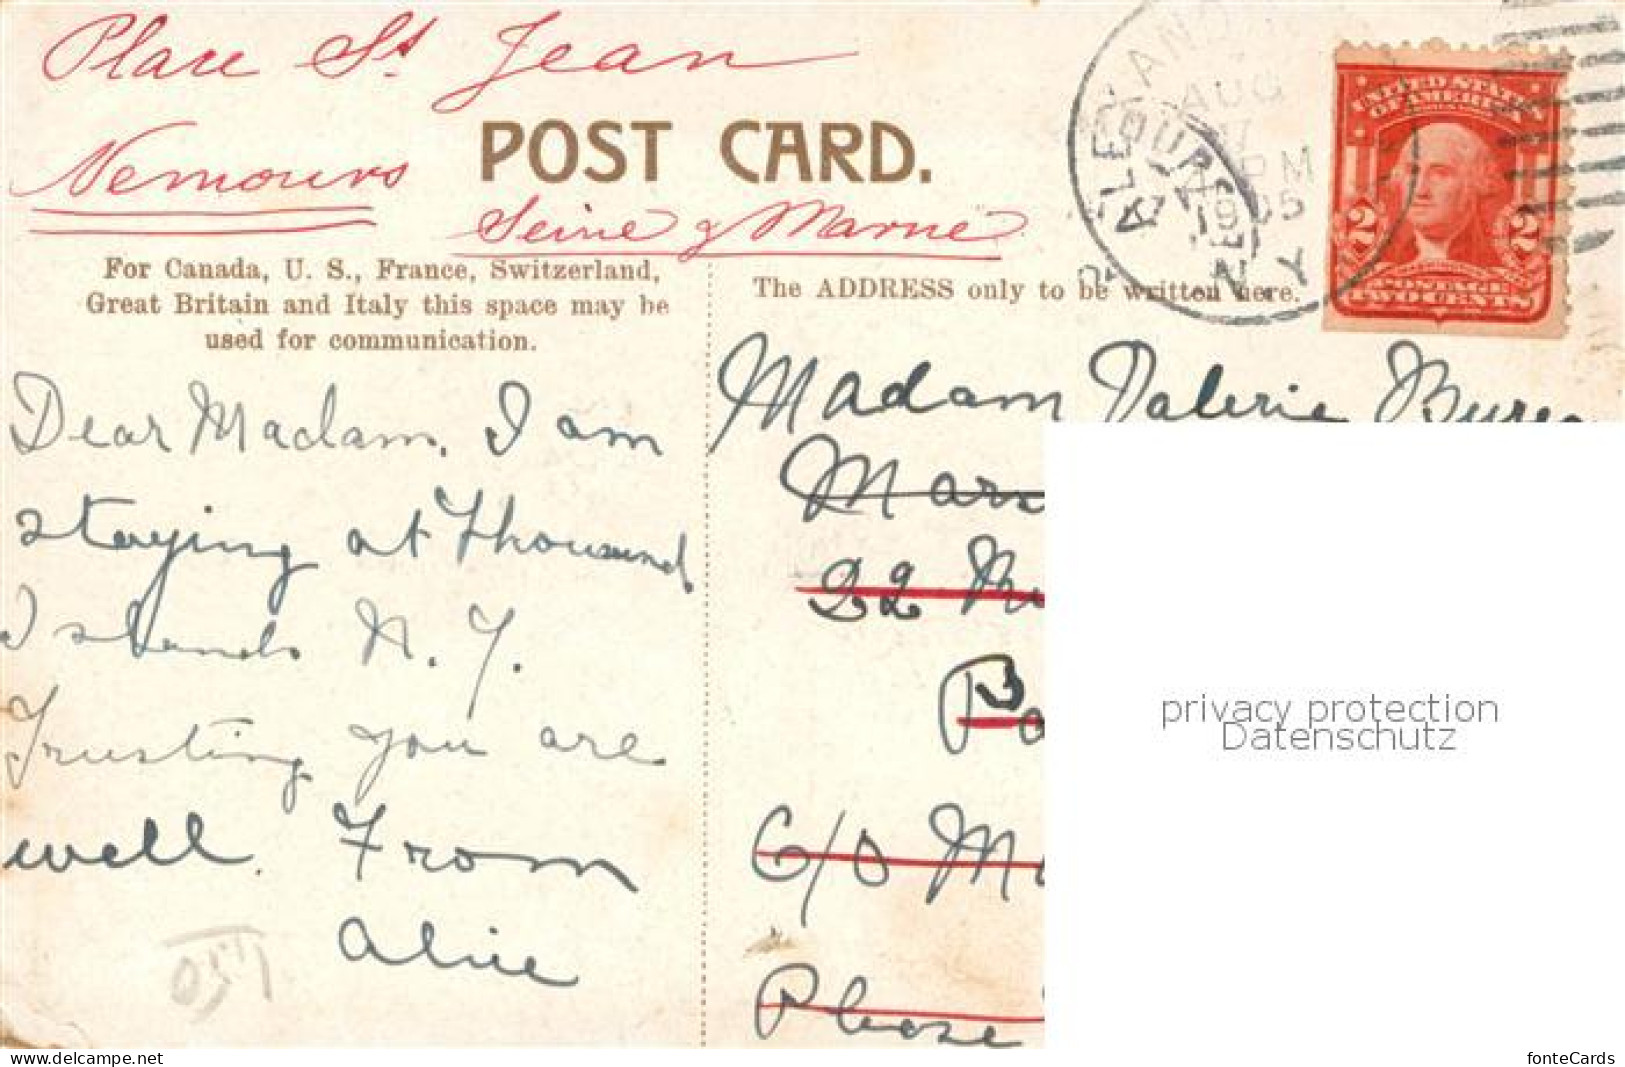 Place St Jean
Nemours
POST CARD.
Seine & Marne
For Canada, U. S., France, Switzerland,
Great Britain and Italy this space may be
used for communication.
The ADDRESS only to be written here.
ALEXAN
AUG
7
PM
1905
N.Y
UNITED STATES
OF AMERICA
2 2
POSTAGE
TWO CENTS
Dear Madam. I am
staying at Thousand
Islands N. Y.
Trusting you are
well. From
Alice
Madam Valerie
22
C/O M
Please
privacy protection
Datenschutz
www.delcampe.net
fonteCards